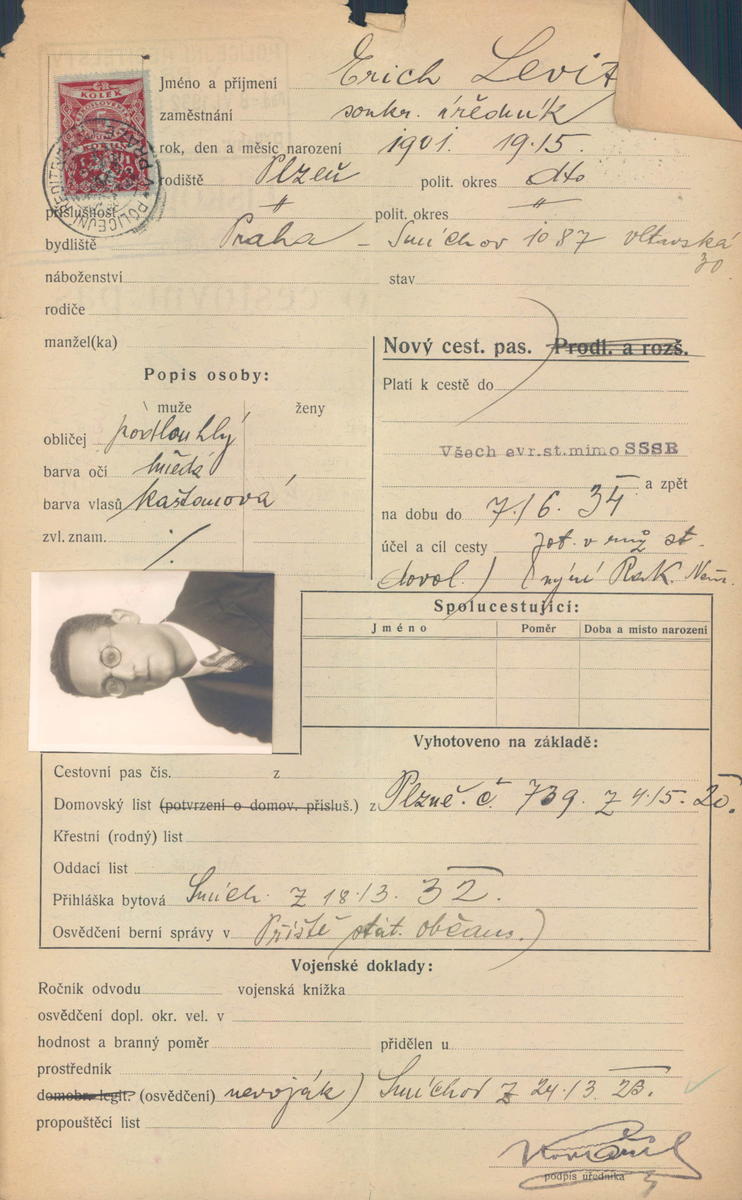 KOLEK
POLICEJNÍ ŘEDITELSTVÍ
Jméno a příjmení Erich Levit
zaměstnání soukr. úředník
rok, den a měsíc narození 1901. 19.15.
rodiště Plzeň polit. okres dto
příslušnost " polit. okres "
bydliště Praha - Smíchov 1087 Vltavská 30
náboženství stav
rodiče
manžel(ka)
Nový cest. pas. Prodl. a rozš.
Platí k cestě do
Všech evr.st.mimo SSSR
a zpět
na dobu do 7./6. 34
účel a cíl cesty
dovol.) (nyní Rak. Něm.
Popis osoby:
muže ženy
obličej podlouhlý
barva očí hnědá
barva vlasů kaštanová
zvl. znam. ./.
Spolucestující:
Jméno Poměr Doba a místo narození
Vyhotoveno na základě:
Cestovní pas čís. z
Domovský list (potvrzení o domov. přísluš.) z Plzně. č. 739. z 4.15. 20.
Křestní (rodný) list
Oddací list
Přihláška bytová Smích. z 18.13. 32.
Osvědčení berní správy v Příště stát. občans.)
Vojenské doklady:
Ročník odvodu vojenská knížka
osvědčení dopl. okr. vel. v
hodnost a branný poměr přidělen u
prostředník
domobr. legit. (osvědčení) nevoják) Smíchov z 24.13. 23.
propouštěcí list
podpis úředníka